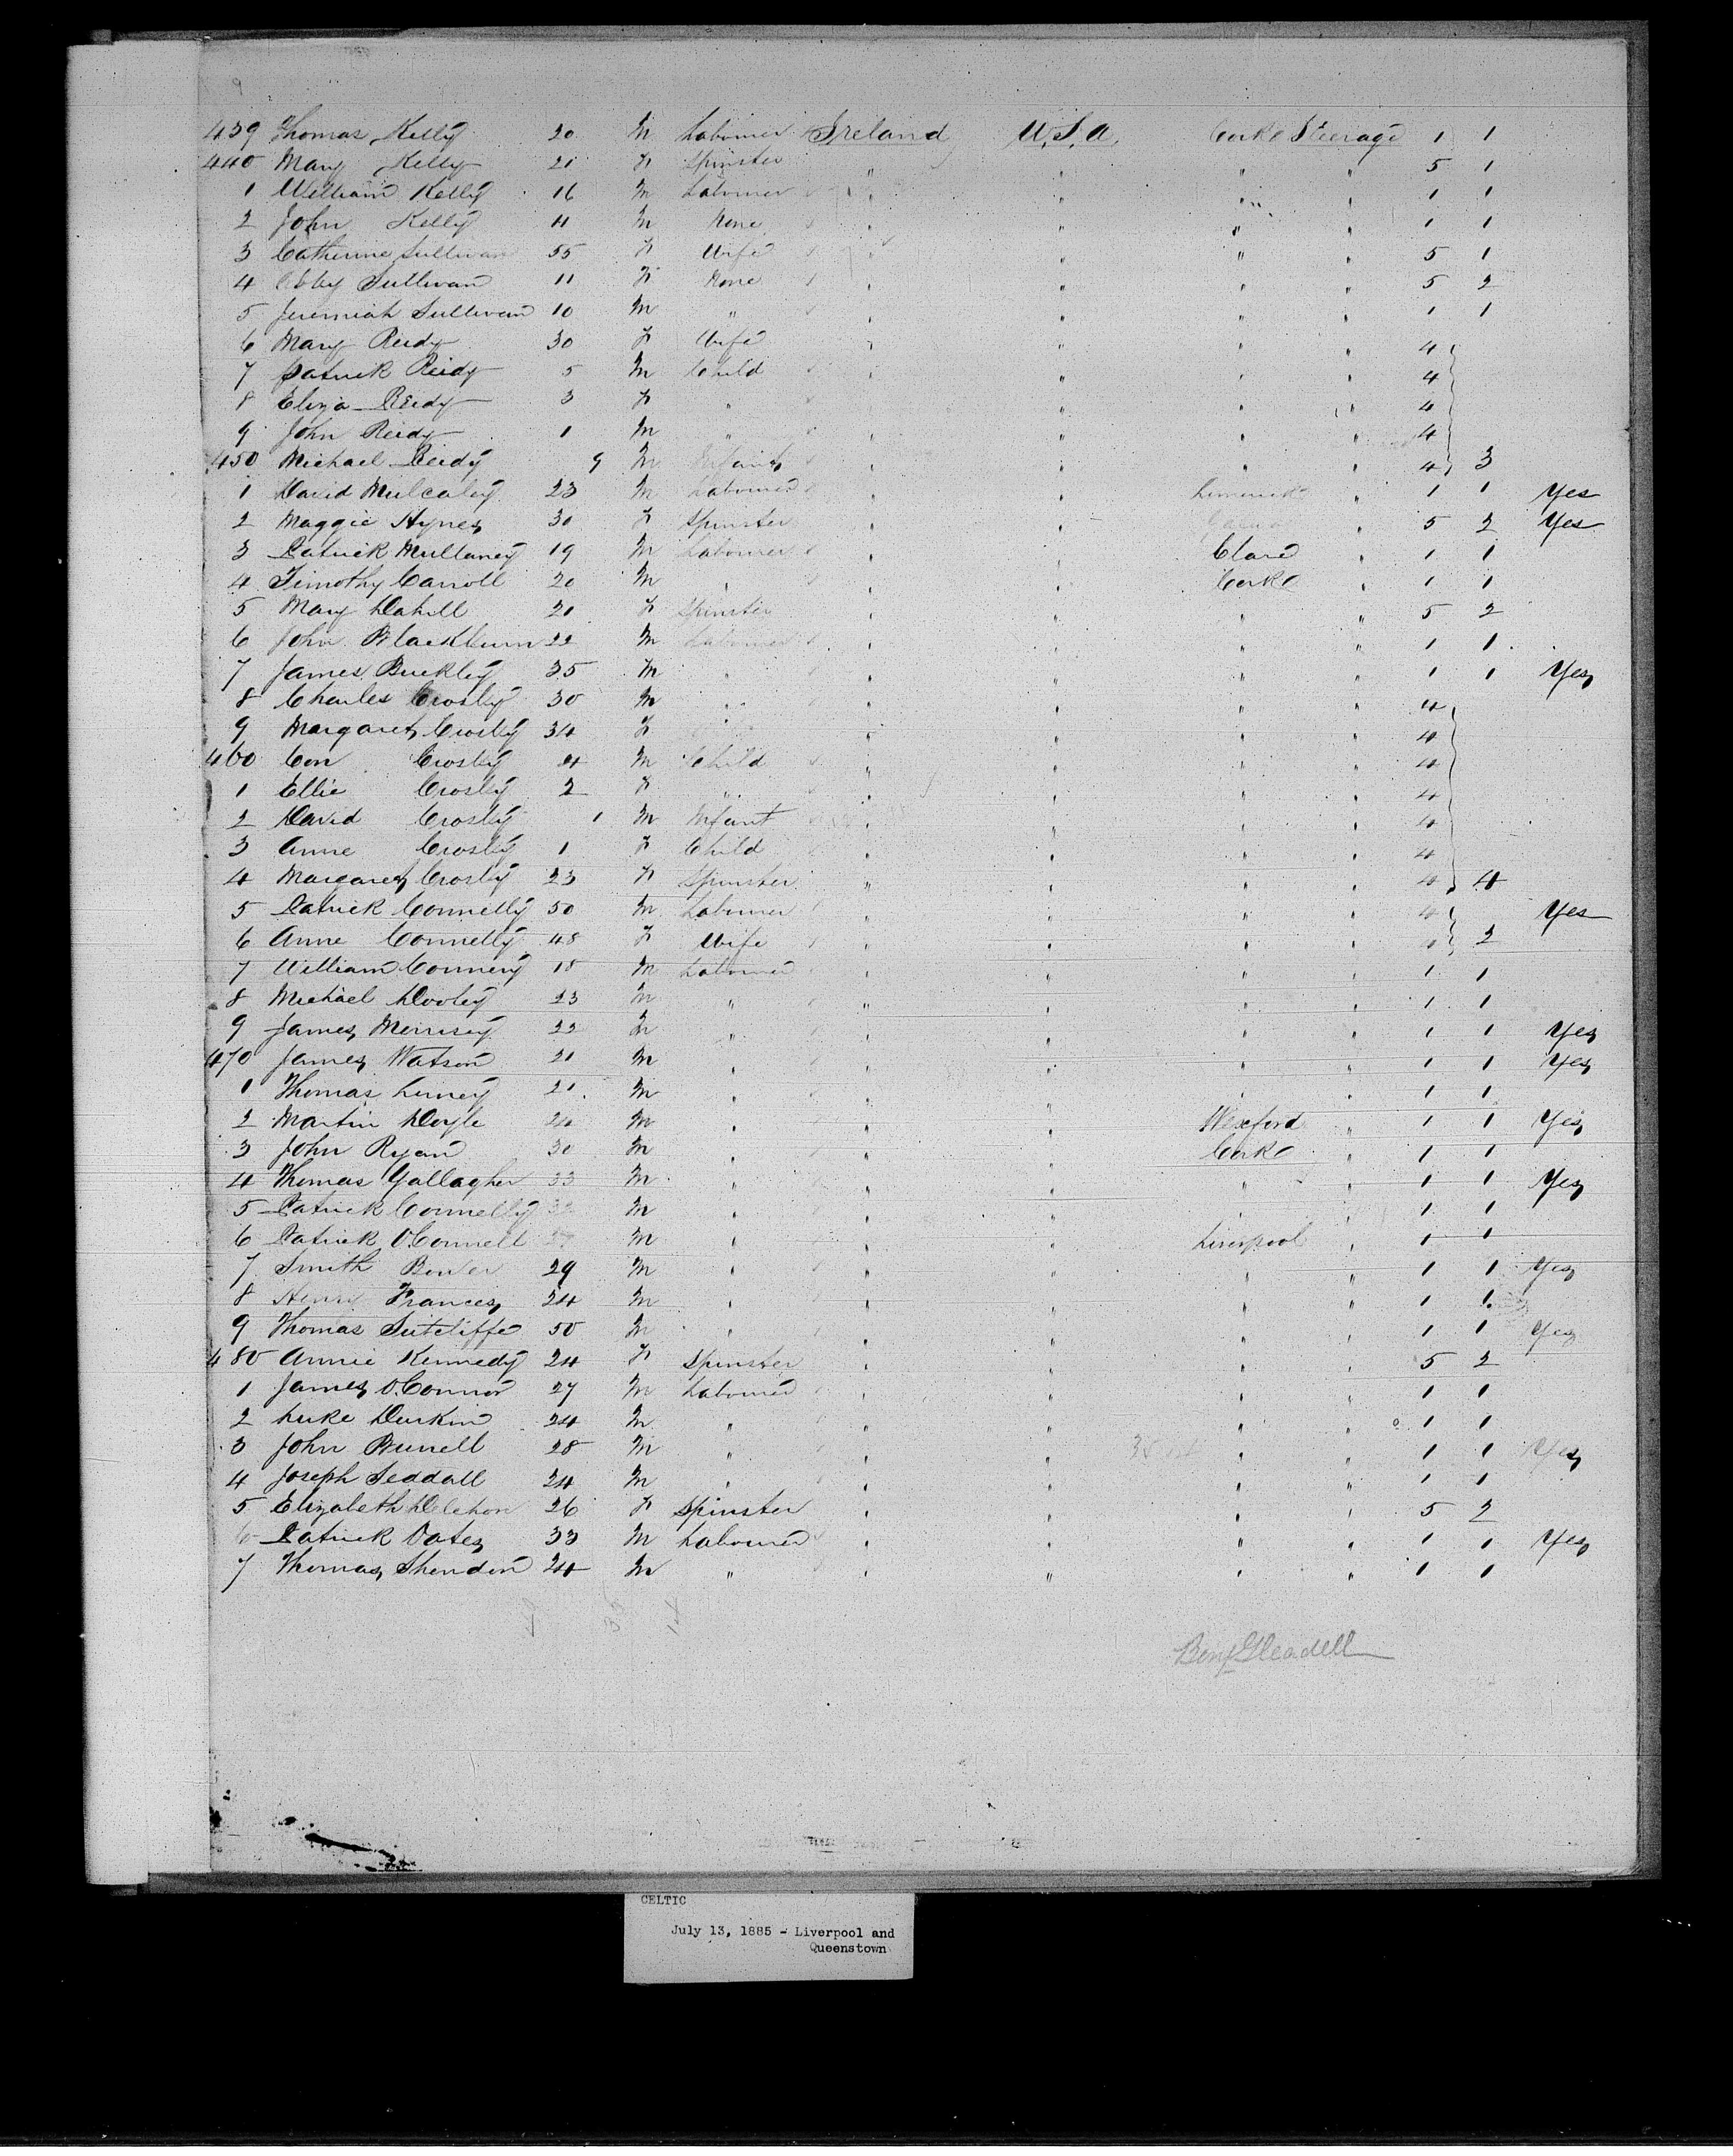 439 Thomas Kelly 20 M Labourer Ireland U.S.A. Cork Steerage 1 1
440 Mary Kelly 21 F Spinster " " " " 5 1
1 William Kelly 16 M Labourer " " " " 1 1
2 John Kelly 11 M None " " " " 1 1
3 Catherine Sullivan 55 F Wife " " " " 5 1
4 Abby Sullivan 11 F None " " " " 5 2
5 Jeremiah Sullivan 10 M " " " " " 1 1
6 Mary Reidy 30 F Wife " " " " 4
7 Patrick Reidy 5 M Child " " " " 4
8 Eliza Reidy 3 F " " " " " 4
9 John Reidy 1 M " " " " " 4
450 Michael Reidy 9 M Infant " " " " 4 3
1 David Mulcahy 23 M Labourer " " Limerick " 1 1 Yes
2 Maggie Hynes 30 F Spinster " " " 5 2 Yes
3 Patrick Mullaney 19 M Labourer " " Clare " 1 1
4 Timothy Carroll 20 M " " " Cork " 1 1
5 Mary Dahill 20 F Spinster " " " " 5 2
6 John Blackburn 22 M Labourer " " " " 1 1
7 James Buckley 35 M " " " " " 1 1 Yes
8 Charles Crosby 30 M " " " " " 4
9 Margaret Crosby 34 F " " " " 4
460 Con Crosby 4 M Child " " " " 4
1 Ellie Crosby 2 F " " " " " 4
2 David Crosby 1 M Infant " " " " 4
3 Anne Crosby 1 F Child " " " " 4
4 Margaret Crosby 23 F Spinster " " " " 4 4
5 Patrick Connelly 50 M Labourer " " " " 4 Yes
6 Anne Connelly 48 F Wife " " " " 4 2
7 William Connery 18 M Labourer " " " " 1 1
8 Michael Dooley 23 M " " " " " 1 1
9 James Morrisey 22 M " " " " " 1 1 Yes
470 James Watson 21 M " " " " " 1 1 Yes
1 Thomas 21 M " " " " " 1 1
2 Martin Doyle 24 M " " " Wexford " 1 1 Yes
3 John Ryan 30 M " " " Cork " 1 1
4 Thomas Gallagher 33 M " " " " " 1 1 Yes
5 Patrick Connelly M " " " " " 1 1
6 Patrick O'Connell M " " " Liverpool " 1 1
7 Smith Bower 29 M " " " " " 1 1 Yes
8 Henry Frances 24 M " " " " " 1 1
9 Thomas Sutcliffe 50 M " " " " " 1 1 Yes
480 Annie Kennedy 24 F Spinster " " " " 5 2
1 James O'Connor 27 M Labourer " " " " 1 1
2 Luke Durkin 24 M " " " " " 1 1
3 John Burrell 28 M " " " " " 1 1 Yes
4 Joseph Seddall 24 M " " " " " 1 1
5 Elizabeth 26 F Spinster " " " " 5 2
6 Patrick Oates 33 M Labourer " " " " 1 1 Yes
7 Thomas 24 M " " " " " 1 1
Benj Gleadell
CELTIC
July 13, 1885 - Liverpool and
Queenstown